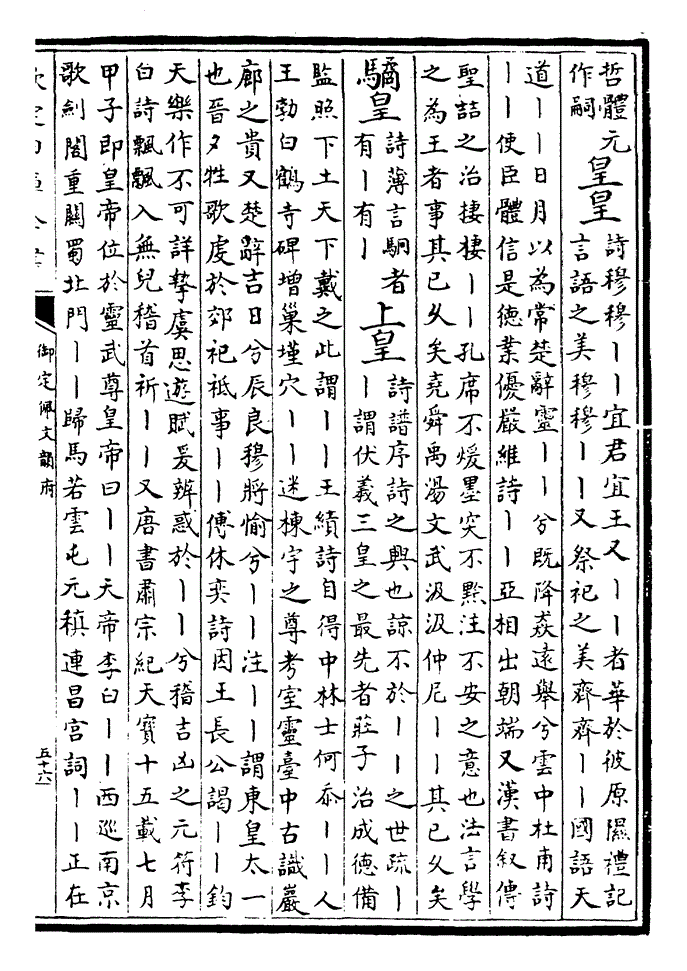 哲體元
作嗣
皇皇
詩穆穆丨丨宜君宜王又丨丨者華於彼原隰禮記
言語之美穆穆丨丨又祭祀之美齊齊丨丨國語天
道丨丨日月以為常楚辭靈丨丨兮既降猋遠舉兮雲中杜甫詩
丨丨使臣體信是德業優嚴維詩丨丨亞相出朝端又漢書叙傳
聖喆之治棲棲丨丨孔席不煖墨突不黔注不安之意也法言學
之為王者事其已久矣堯舜禹湯文武汲汲仲尼丨丨其已久矣
驈皇
詩薄言駉者
有丨有丨
上皇
詩譜序詩之興也諒不於丨丨之世疏丨
丨謂伏羲三皇之最先者莊子治成德備
監照下土天下戴之此謂丨丨王績詩自得中林士何忝丨丨人
王勃白鶴寺碑增巢墐穴丨丨迷棟宇之尊考室靈臺中古識巖
廊之貴又楚辭吉日兮辰良穆將愉兮丨丨注丨丨謂東皇太一
也晉夕牲歌虔於郊祀祗事丨丨傅休奕詩因王長公謁丨丨鈞
天樂作不可詳摯虞思遊賦爰辨惑於丨丨兮稽吉凶之元符李
白詩飄飄入無兒稽首祈丨丨又唐書肅宗紀天寶十五載七月
甲子即皇帝位於靈武尊皇帝曰丨丨天帝李白丨丨西巡南京
歌劍閣重關蜀北門丨丨歸馬若雲屯元稹連昌宮詞丨丨正在
欽定四庫全書
御定佩文韻府
五十六